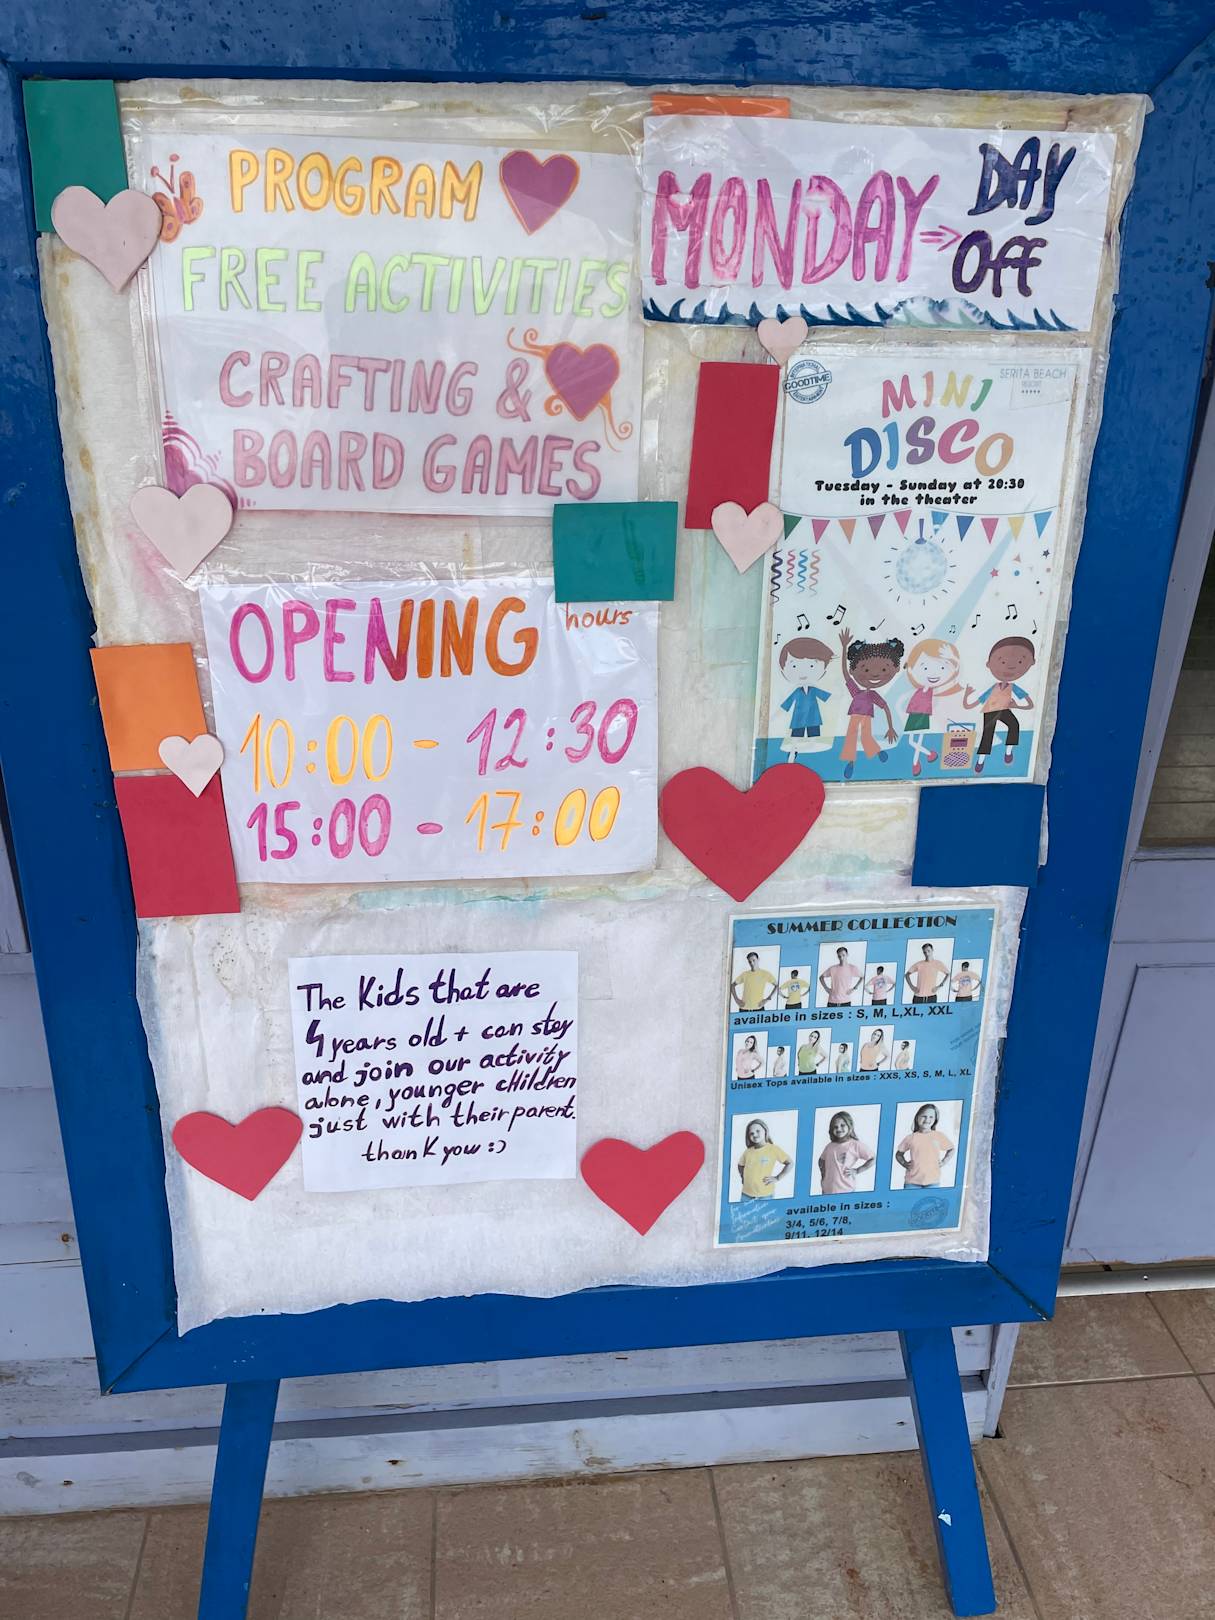 PROGRAM
FREE ACTIVITIES
CRAFTING &
BOARD GAMES
MONDAY ⇒ DAY
OFF
INTERNATIONAL
GOODTIME
ENTERTAINMENT
SERITA BEACH
RESORT
*****
MINI
DISCO
Tuesday - Sunday at 20:30
in the theater
OPENING hours
10:00 - 12:30
15:00 - 17:00
The Kids that are
4 years old + can stay
and join our activity
alone, younger cHildren
just with their parent.
thank you :)
SUMMER COLLECTION
available in sizes : S, M, L,XL, XXL
Unisex Tops available in sizes : XXS, XS, S, M, L, XL
available in sizes :
3/4, 5/6, 7/8,
9/11, 12/14